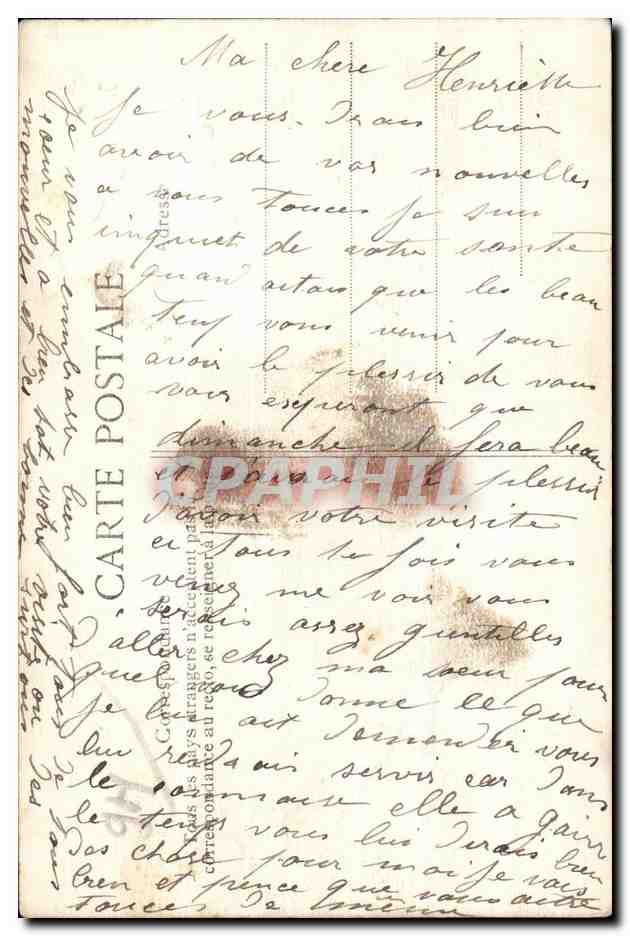 Ma chere Henriette
Je vous dirais bien
avoir de vos nouvelles
a vous toutes je suis
inquiet de votre sante
quand que les beau
vous venir pour
avoir le plessir de vous
voir esperont que
dimanche il fera beau
et j'aurai le plessir
d'avoir votre visite
et sous te fois vous
venez me voir vous
serais assez gentilles
aller chez ma soeur pour
quel vous donne ce que
je lui ait demander vous
lui rendrais servir car dans
le elle a
le temps vous lui dirais bien
des chose pour moi je vais
bien et pence que vous autre
toutes de meme
Je vous embrasse bien fort tous de tous
coeur et a bien tot votre visite ou des
nouvelles et
CARTE POSTALE
Correspondance
Adresse
Tous les pays étrangers n'acceptent pas
correspondance au recto, se renseigner à la
CPAPHIL